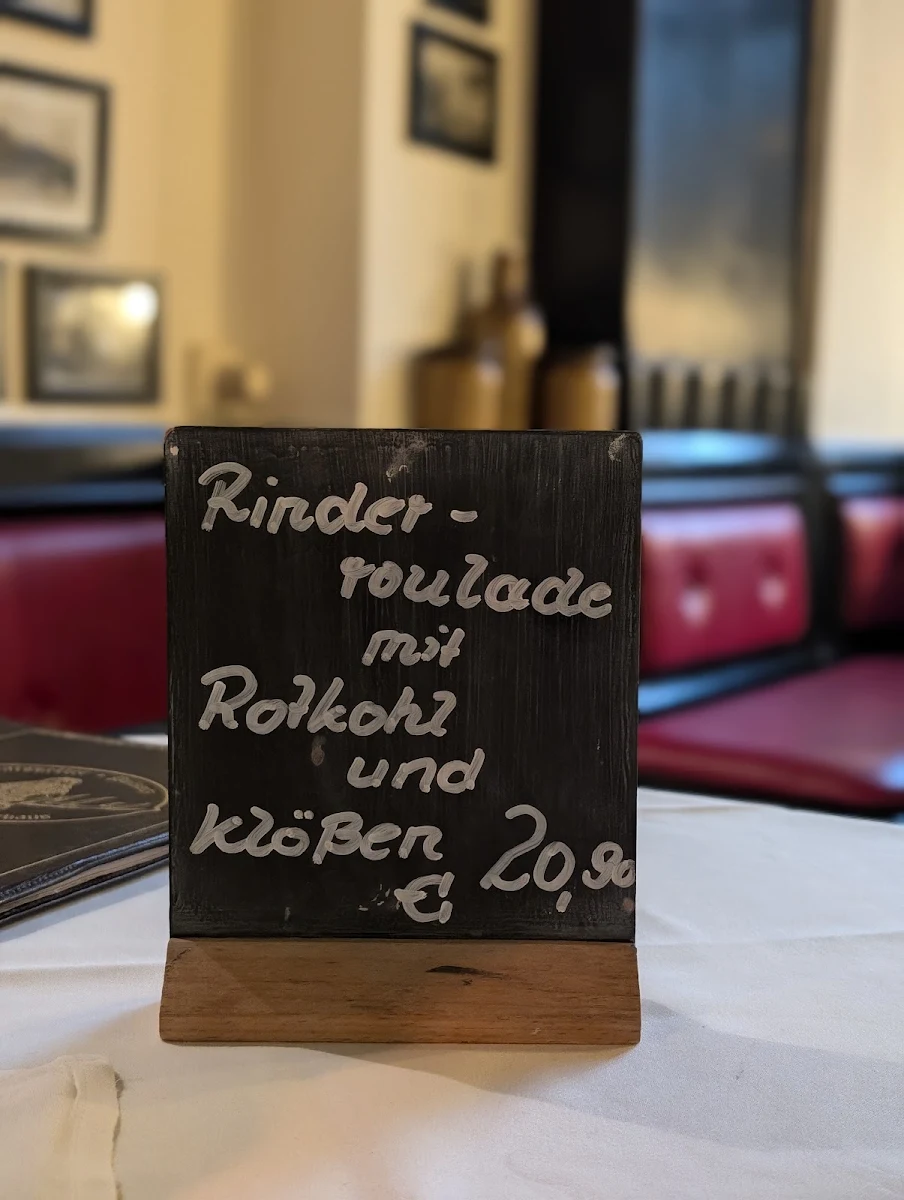 Rinder-
roulade
mit
Rotkohl
und
klößen
€ 20,90